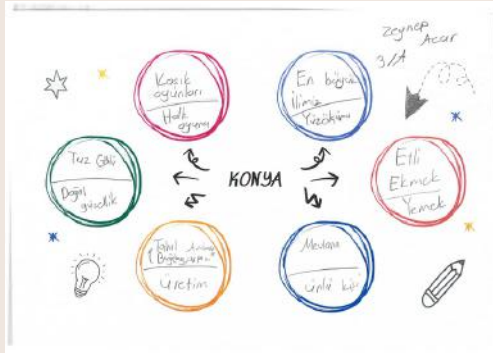 Zeynep
Acar
3/A
Kaşık
oyunları
Halk
oyunu
En büyük
ilimiz
Yüzölçümü
Tuz Gölü
Doğal
güzellik
KONYA
Etli
Ekmek
Yemek
Tahıl Ambarı
Üretim
Mevlana
ünlü kişi